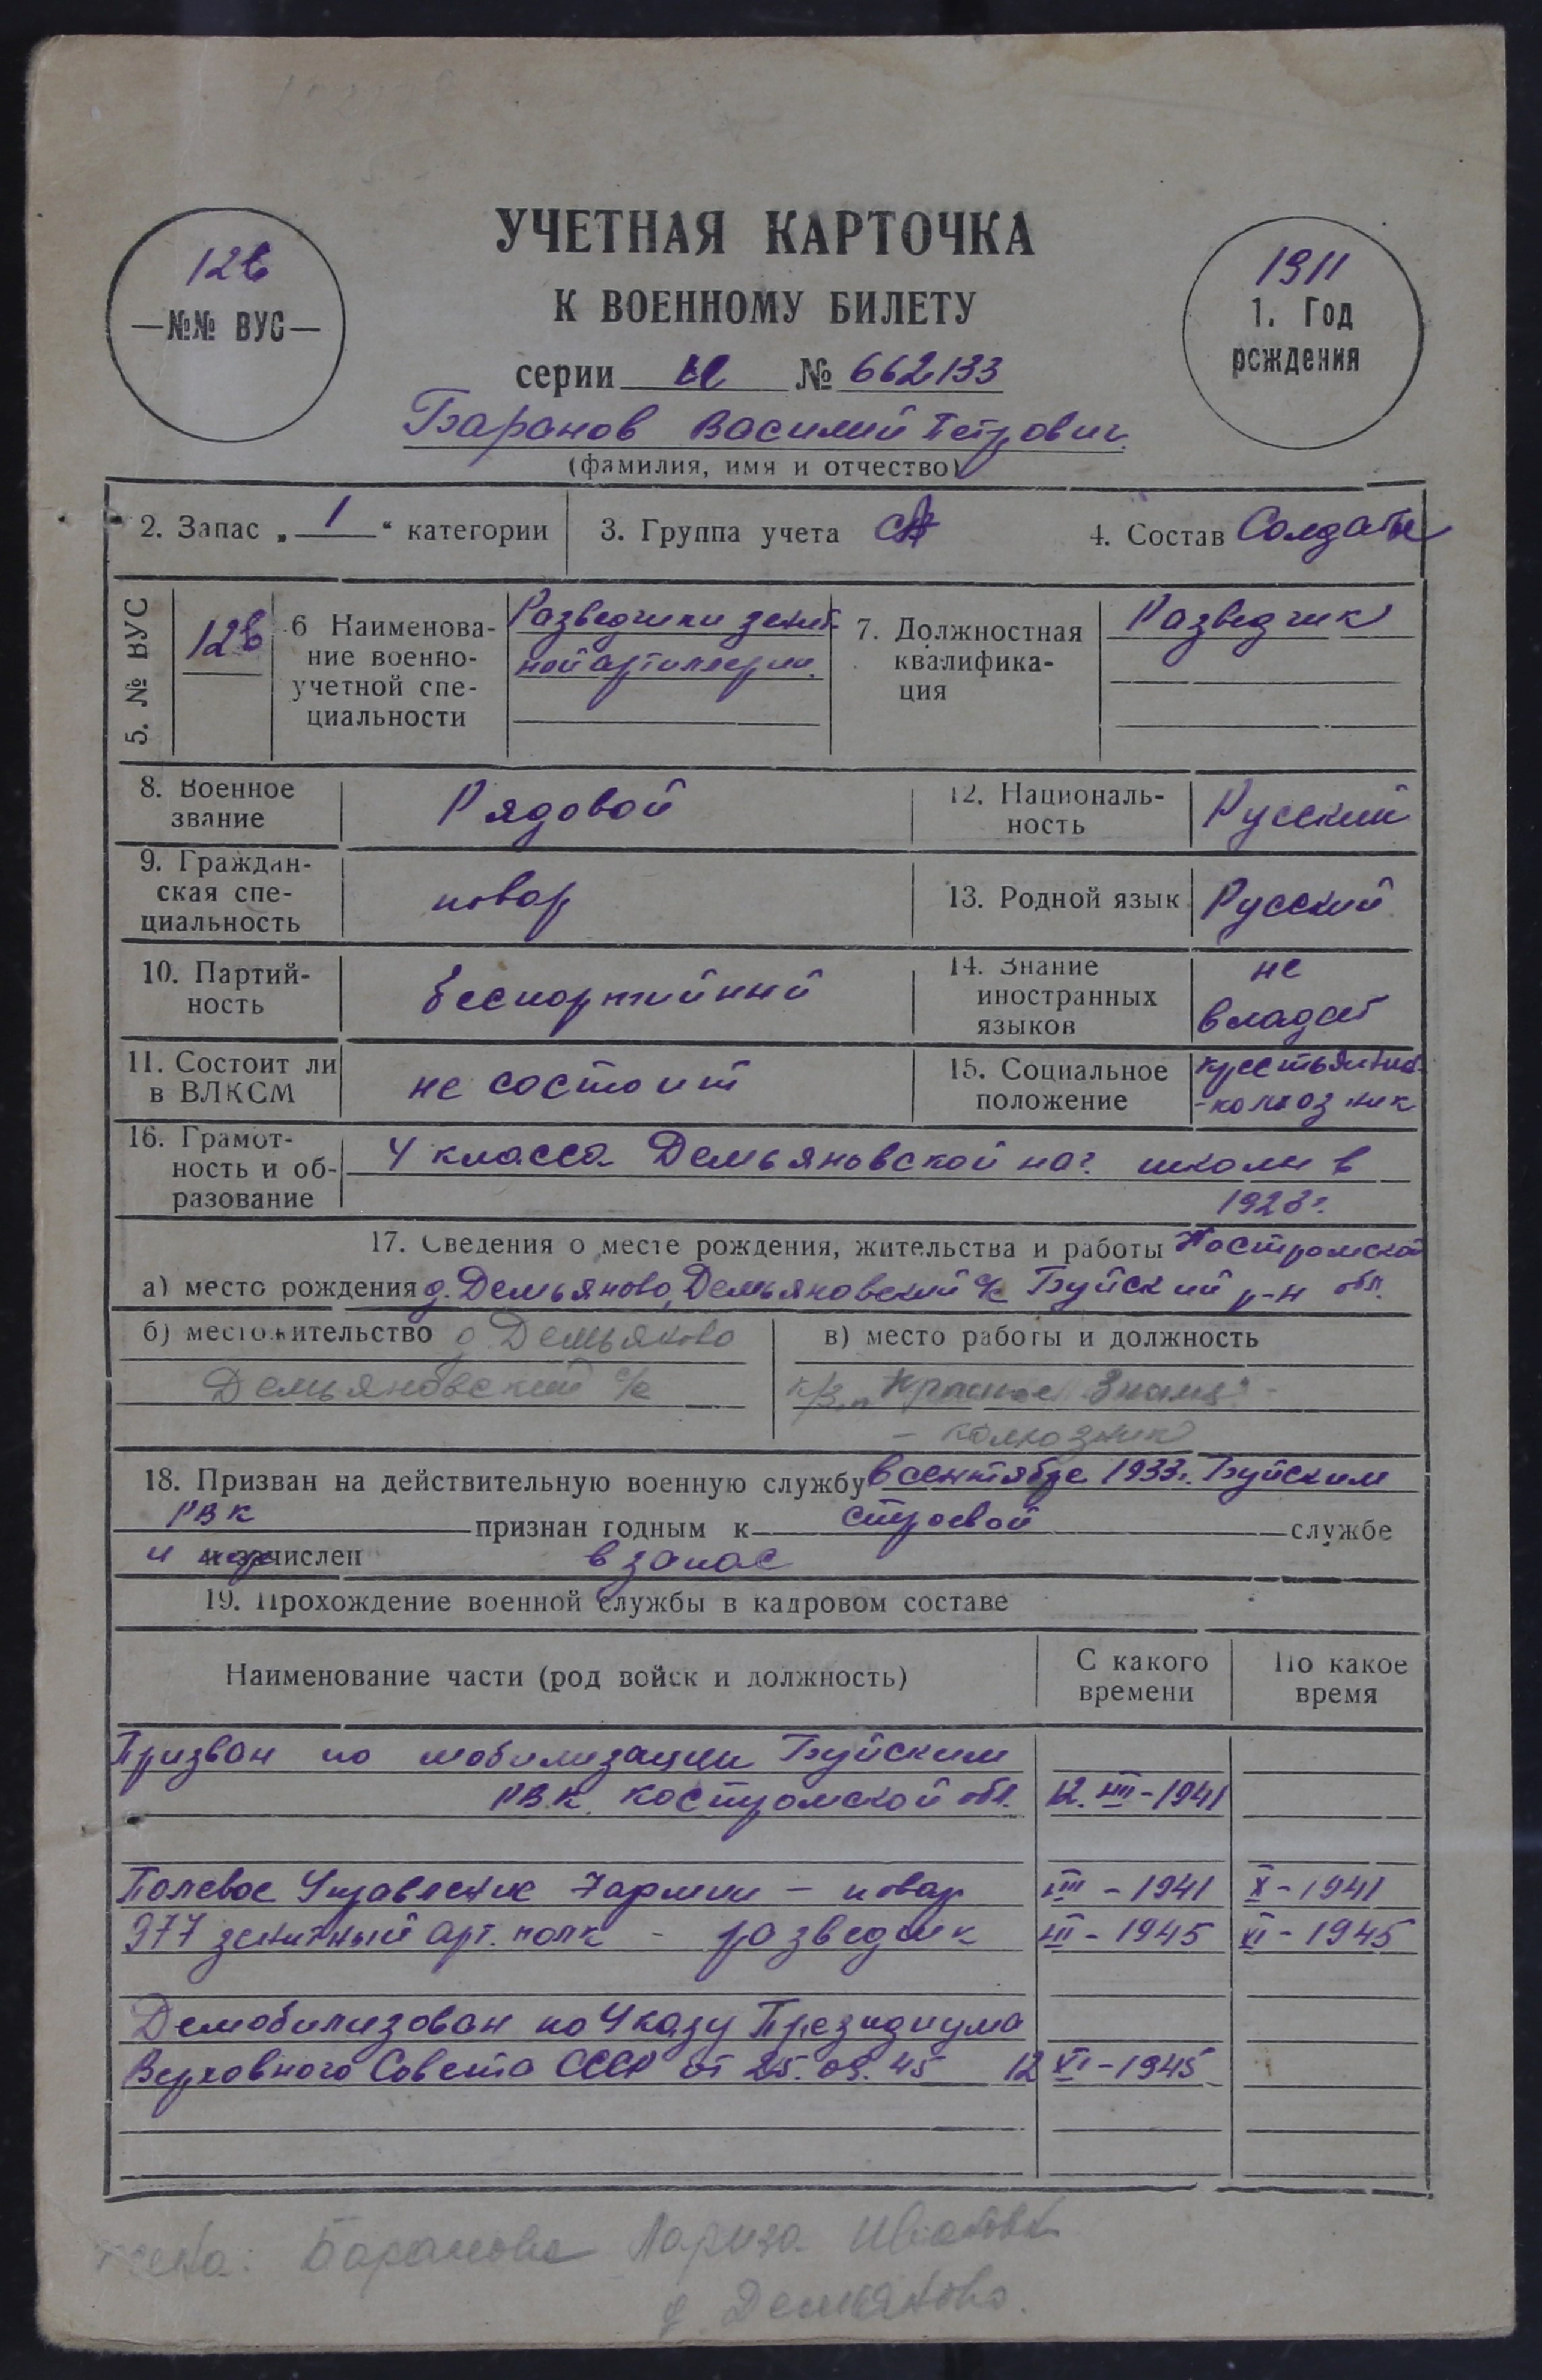 УЧЕТНАЯ КАРТОЧКА
К ВОЕННОМУ БИЛЕТУ
12в
—№№ ВУС—
1911
1. Год
рождения
серии № 662133
Баранов Василий Петрович
(фамилия, имя и отчество)
2. Запас „ 1 “ категории
3. Группа учета СА
4. Состав Солдаты
5. № ВУС
12в
6 Наименова-
ние военно-
учетной спе-
циальности
Разведчики зенит-
ной артиллерии.
7. Должностная
квалифика-
ция
Разведчик
8. Военное
звание
Рядовой
12. Националь-
ность
Русский
9. Граждан-
ская спе-
циальность
повар
13. Родной язык
Русский
10. Партий-
ность
беспартийный
14. Знание
иностранных
языков
не
владеет
11. Состоит ли
в ВЛКСМ
не состоит
15. Социальное
положение
-колхозник
16. Грамот-
ность и об-
разование
4 класса Демьяновской нач. школы в
1923г.
17. Сведения о месте рождения, жительства и работы Костромской
а) место рождения д. Демьяново, Демьяновский с/с Буйский р-н обл.
б) местожительство д Демьяново
Демьяновский с/с
в) место работы и должность
к/з „Красное Знамя"-
- колхозник
18. Призван на действительную военную службу в сентябре 1933г. Буйским
РВК признан годным к строевой службе
и зачислен в запас
19. Прохождение военной службы в кадровом составе
Наименование части (род войск и должность)
С какого
времени
По какое
время
Призван по мобилизации Буйским
РВК. Костромской обл. 12. VIII-1941
Полевое Управление 7 армии - повар VIII - 1941 X - 1941
977 зенитный арт. полк - разведчик III - 1945 XI - 1945
Демобилизован по Указу Президиума
Верховного Совета СССР от 25.09.45 12 XI-1945
жена: Баранова Лариза
д Демьяново.